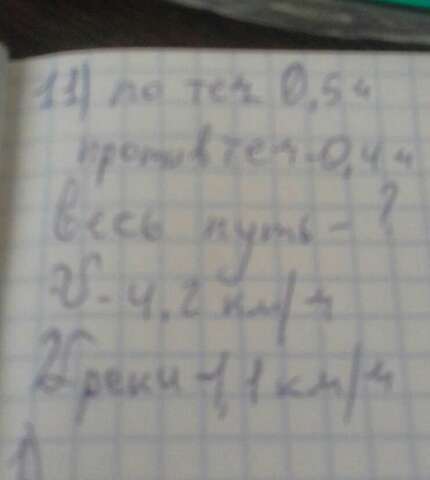 11) по теч 0,5ч
против теч-0,4ч
весь путь-?
V-4,2 км/ч
V реки-1,1 км/ч
1)